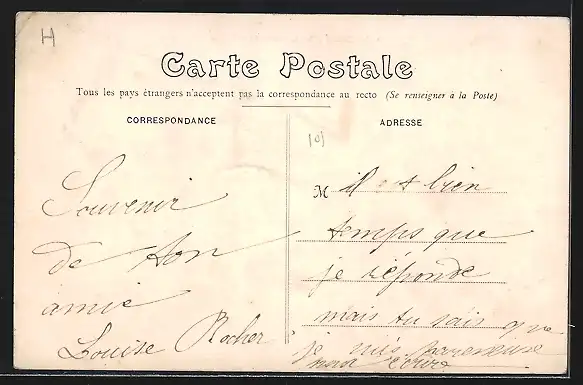 H
Carte Postale
Tous les pays étrangers n'acceptent pas la correspondance au recto (Se renseigner à la Poste)
CORRESPONDANCE
Souvenir
de ton
amie
Louise Rocher
ADRESSE
M il est bien
temps que
je réponde
mais tu sais que
je suis paresseuse
pour écrire